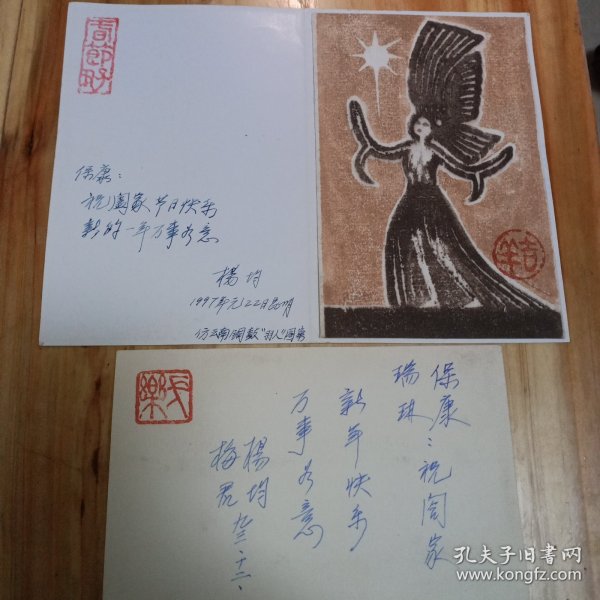 春節好
保康：
祝阖家节日快乐
新的一年万事如意
楊均
1997年元.22日昆明
仿云南铜鼓"羽人"图案
保康：祝阖家
瑞琳
新年快乐
万事如意
楊均
梅
九三.十二.
孔夫子旧书网
www.kongfz.com